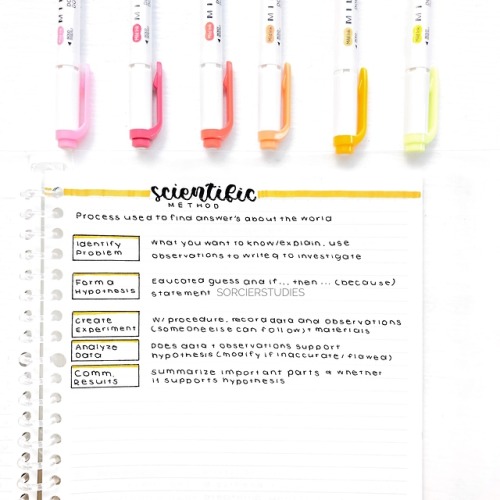 scientific
METHOD
Process used to find answer's about the world
Identify
Problem
what you want to know/explain, use
observations to write q to investigate
Form a
Hypothesis
Educated guess and if... then ... (because)
statement
SORCIERSTUDIES
Create
Experiment
w/ procedure, record data and observations
(someone else can follow) + materials
Analyze
Data
Does data + observations support
hypothesis (modify if inaccurate/flawed)
Comm.
Results
Summarize important parts + whether
it supports hypothesis